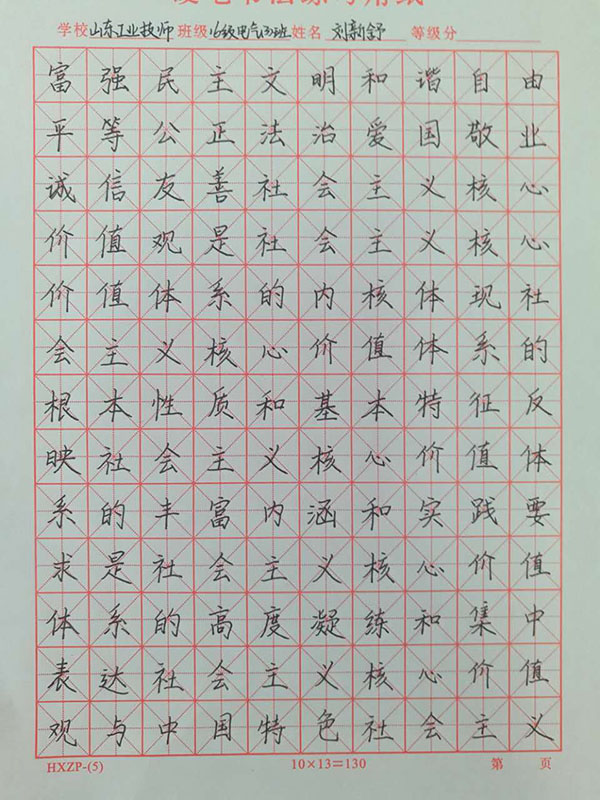 学校山东工业技师班级16级电气(3)班姓名 刘新舒 等级分
富强民主文明和谐自由
平等公正法治爱国敬业
诚信友善社会主义核心
价值观是社会主义核心
价值体系的内核体现社
会主义核心价值体系的
根本性质和基本特征反
映社会主义核心价值体
系的丰富内涵和实践要
求是社会主义核心价值
体系的高度凝练和集中
表达社会主义核心价值
观与中国特色社会主义
HXZP-(5) 10×13=130 第 页